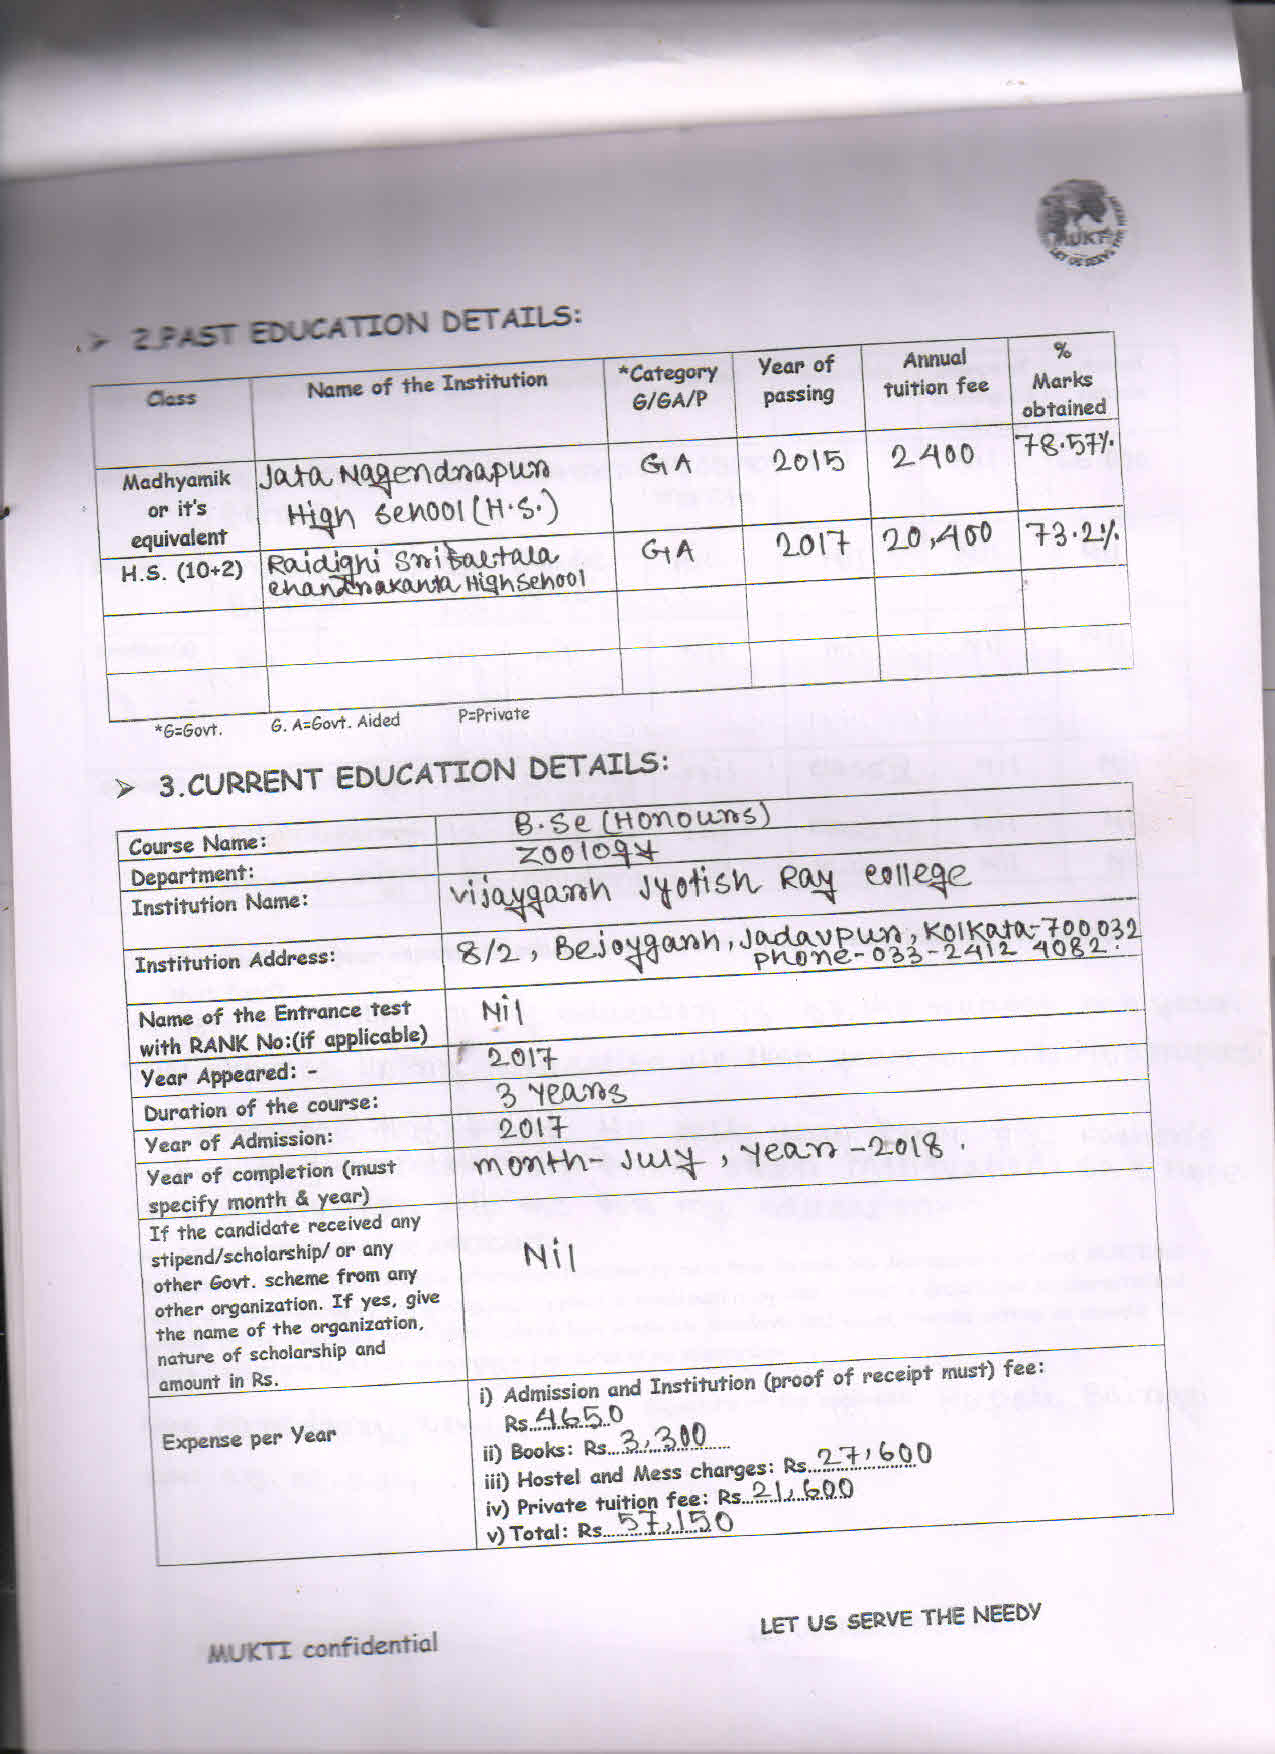 MUKTI
LET US SERVE THE NEEDY
2.PAST EDUCATION DETAILS:
Class Name of the Institution *Category G/GA/P Year of passing Annual tuition fee % Marks obtained
Madhyamik or it's equivalent Jata Nagendrapur High School (H.S.) GA 2015 2400 78.57%
H.S. (10+2) Raidighi Chandrakanta High School GA 2017 20,400 73.2%
*G=Govt. G. A=Govt. Aided P=Private
3.CURRENT EDUCATION DETAILS:
Course Name: B.Sc (Honours)
Department: Zoology
Institution Name: Vijaygarh Jyotish Ray College
Institution Address: 8/2, Bejoygarh, Jadavpur, Kolkata-700032
Phone-033-2412 4082.
Name of the Entrance test
with RANK No:(if applicable) Nil
Year Appeared: - 2017
Duration of the course: 3 years
Year of Admission: 2017
Year of completion (must
specify month & year) month-July, year-2018.
If the candidate received any
stipend/scholarship/ or any
other Govt. scheme from any
other organization. If yes, give
the name of the organization,
nature of scholarship and
amount in Rs. Nil
Expense per Year
i) Admission and Institution (proof of receipt must) fee:
Rs. 4650
ii) Books: Rs. 3,300
iii) Hostel and Mess charges: Rs. 27,600
iv) Private tuition fee: Rs. 21,600
v) Total: Rs. 57,150
MUKTI confidential LET US SERVE THE NEEDY